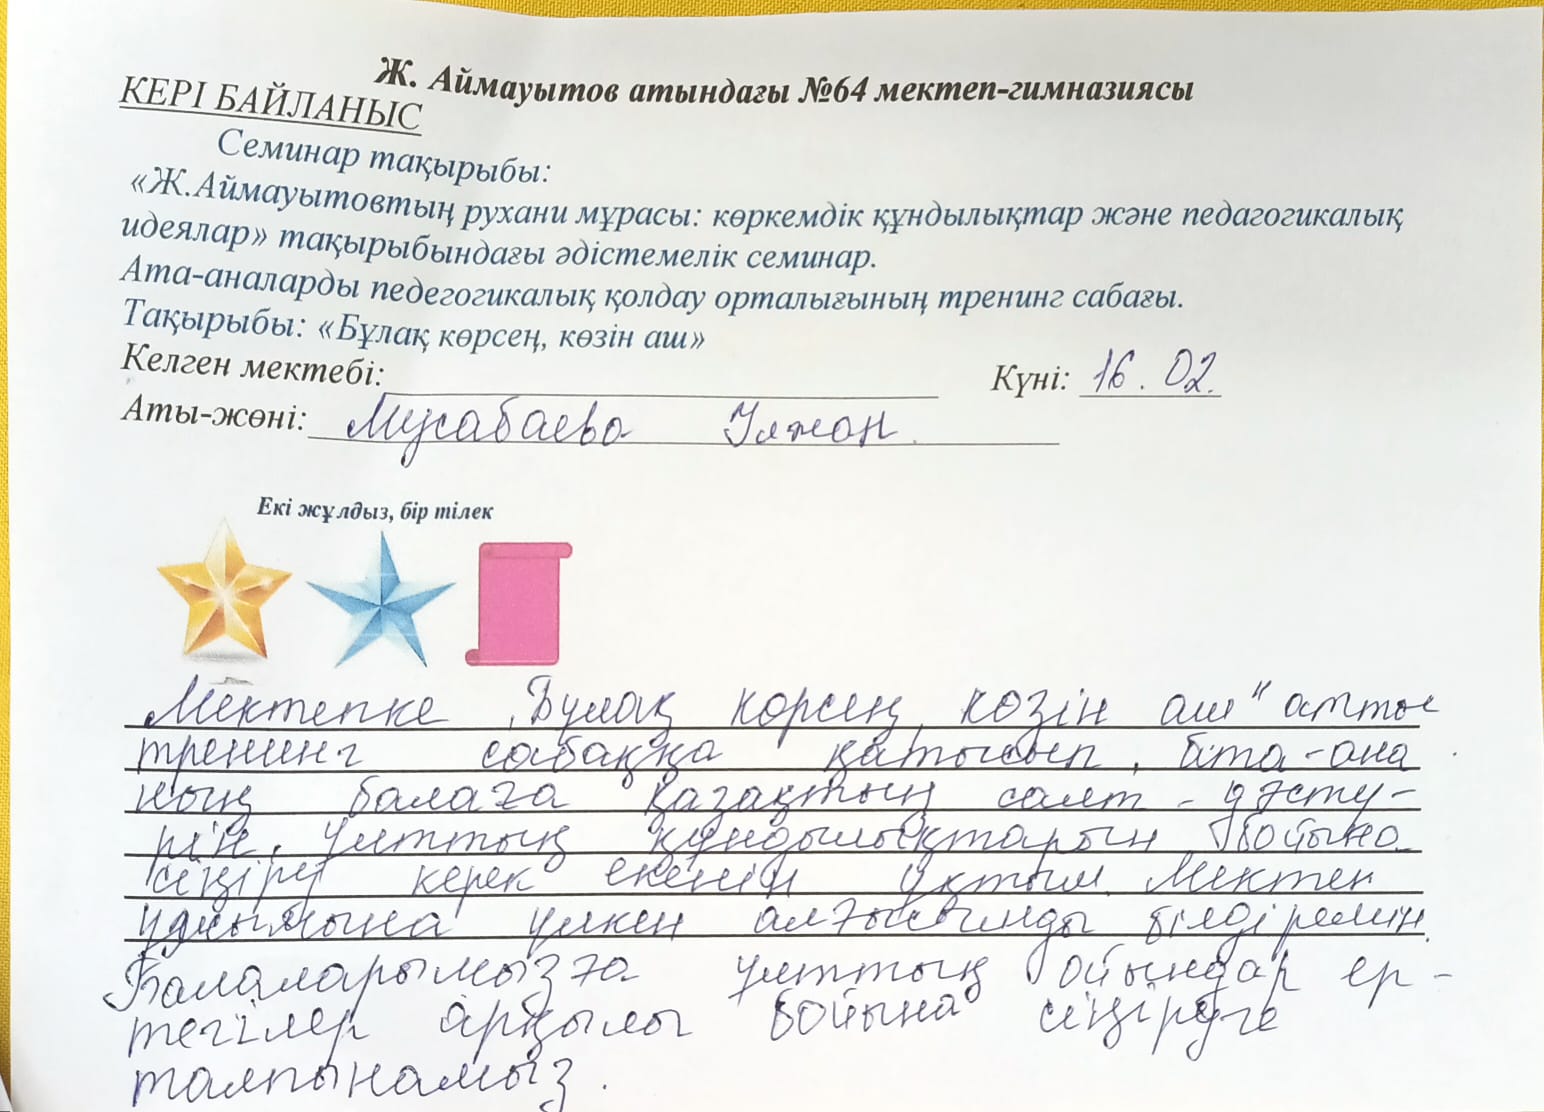 Ж. Аймауытов атындағы №64 мектеп-гимназиясы
КЕРІ БАЙЛАНЫС
Семинар тақырыбы:
«Ж.Аймауытовтың рухани мұрасы: көркемдік құндылықтар және педагогикалық
идеялар» тақырыбындағы әдістемелік семинар.
Ата-аналарды педегогикалық қолдау орталығының тренинг сабағы.
Тақырыбы: «Бұлақ көрсең, көзін аш»
Келген мектебі: Күні: 16.02.
Аты-жөні: Мусабаева Улжан.
Екі жұлдыз, бір тілек
Мектепке „Бұлақ көрсең, көзін аш" атты
тренинг сабаққа қатысып, ата-ана
ның балаға қазақтың салт-дәсту-
рін, ұлттың құндылықтарын бойына
сіңіру керек екенін ұқтым. Мектеп
ұжымына үлкен алғысымды білдіремін.
Балаларымызға ұлттық ойындар ер-
тегілер арқылы бойына сіңіруге
талпынамыз.